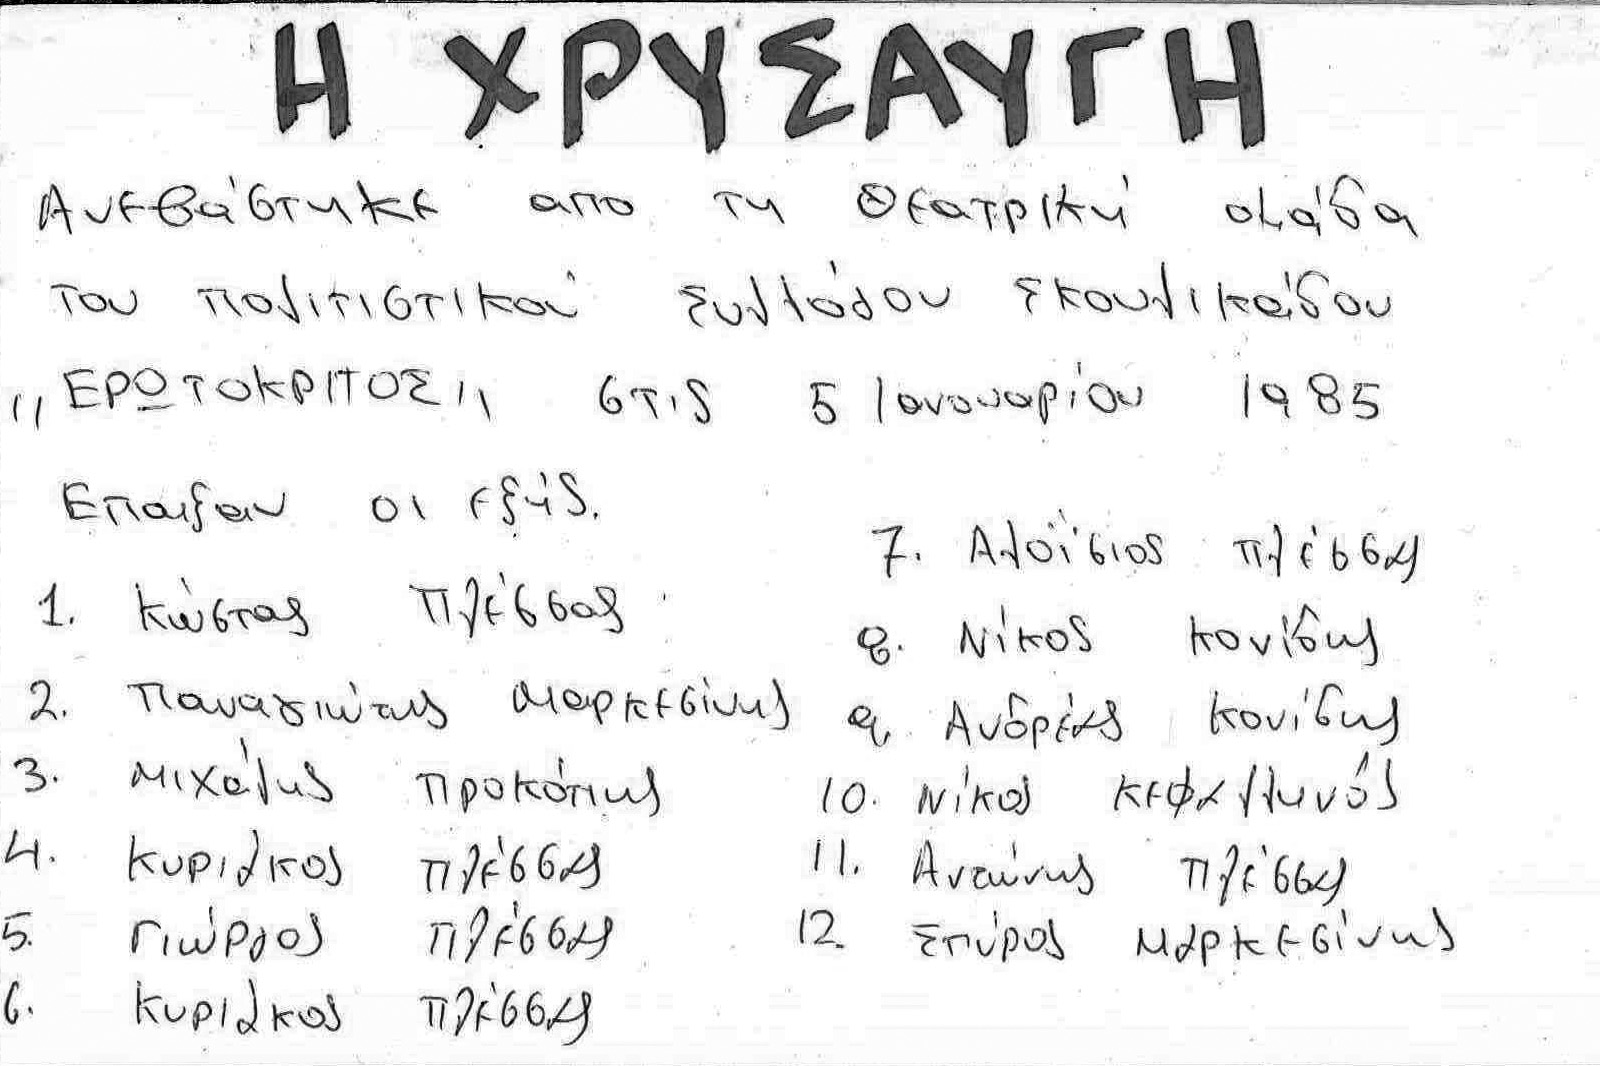 Η ΧΡΥΣΑΥΓΗ
Ανεβάστηκε απο τη Θεατρική ομάδα
του πολιτιστικού Συλλόγου Σκουλικάδου
"ΕΡΩΤΟΚΡΙΤΟΣ" στις 5 Ιανουαρίου 1985
Επαιξαν οι εξής.
1. Κώστας Πλέσσας
2. Παναγιώτης Μαρκεσίνης
3. Μιχάλης Προκόπης
4. Κυριάκος Πλέσσας
5. Γιώργος Πλέσσας
6. Κυριάκος Πλέσσας
7. Αλοΐσιος Πλέσσας
8. Νίκος Κονίδης
9. Ανδρέας Κονίδης
10. Νίκος Κεφαλληνός
11. Αντώνης Πλέσσας
12. Σπύρος Μαρκεσίνης